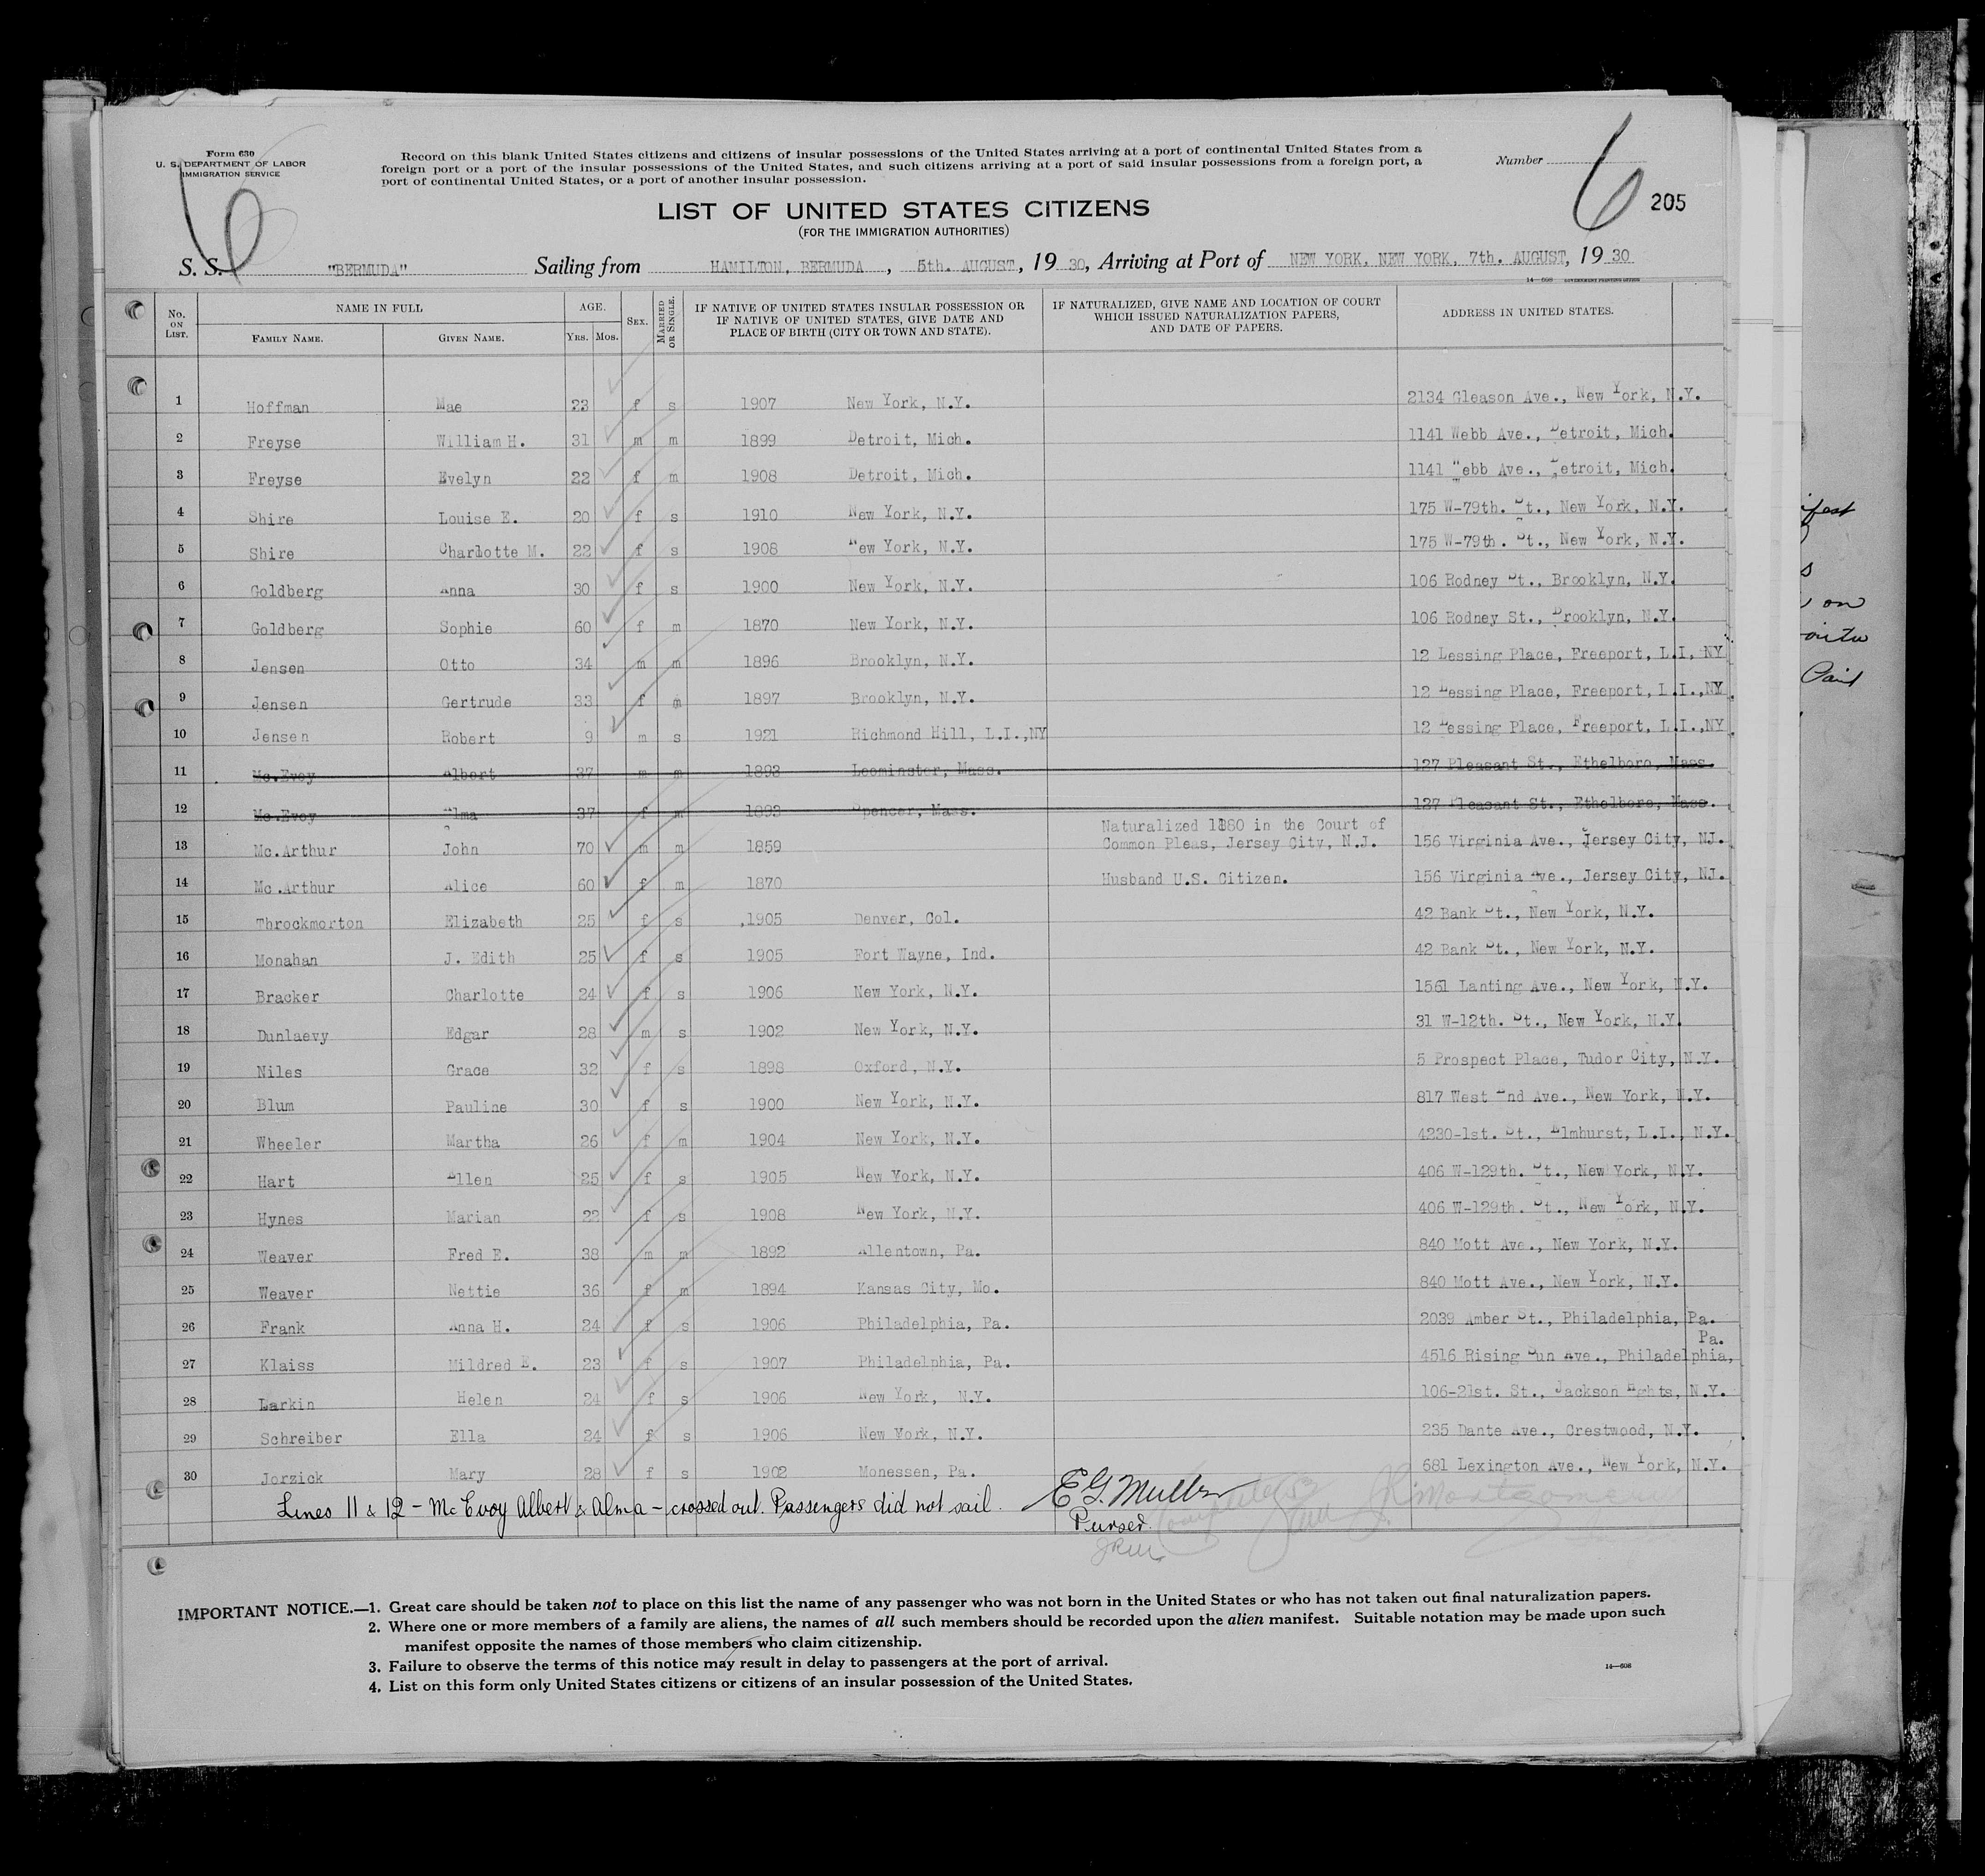 Form 630
U. S. DEPARTMENT OF LABOR
IMMIGRATION SERVICE
Record on this blank United States citizens and citizens of insular possessions of the United States arriving at a port of continental United States from a
foreign port or a port of the insular possessions of the United States, and such citizens arriving at a port of said insular possessions from a foreign port, a
port of continental United States, or a port of another insular possession.
Number
6 6 205
LIST OF UNITED STATES CITIZENS
(FOR THE IMMIGRATION AUTHORITIES)
S. S. "BERMUDA" Sailing from HAMILTON, BERMUDA, 5th. AUGUST, 1930, Arriving at Port of NEW YORK, NEW YORK, 7th. AUGUST, 1930
14—608 GOVERNMENT PRINTING OFFICE
No. ON LIST. NAME IN FULL FAMILY NAME. GIVEN NAME. AGE. YRS. MOS. SEX. MARRIED OR SINGLE. IF NATIVE OF UNITED STATES INSULAR POSSESSION OR IF NATIVE OF UNITED STATES, GIVE DATE AND PLACE OF BIRTH (CITY OR TOWN AND STATE). IF NATURALIZED, GIVE NAME AND LOCATION OF COURT WHICH ISSUED NATURALIZATION PAPERS, AND DATE OF PAPERS. ADDRESS IN UNITED STATES.
1 Hoffman Mae 23 f s 1907 New York, N.Y. 2134 Gleason Ave., New York, N.Y.
2 Freyse William H. 31 m m 1899 Detroit, Mich. 1141 Webb Ave., Detroit, Mich.
3 Freyse Evelyn 22 f m 1908 Detroit, Mich. 1141 Webb Ave., Detroit, Mich.
4 Shire Louise E. 20 f s 1910 New York, N.Y. 175 W-79th. St., New York, N.Y.
5 Shire Charlotte M. 22 f s 1908 New York, N.Y. 175 W-79th. St., New York, N.Y.
6 Goldberg Anna 30 f s 1900 New York, N.Y. 106 Rodney St., Brooklyn, N.Y.
7 Goldberg Sophie 60 f m 1870 New York, N.Y. 106 Rodney St., Brooklyn, N.Y.
8 Jensen Otto 34 m m 1896 Brooklyn, N.Y. 12 Lessing Place, Freeport, L.I, NY
9 Jensen Gertrude 33 f m 1897 Brooklyn, N.Y. 12 Lessing Place, Freeport, L.I.,NY.
10 Jensen Robert 9 m s 1921 Richmond Hill, L.I.,NY 12 Lessing Place, Freeport, L.I.,NY.
11 Mc.Evoy Albert 37 m m 1893 Leominster, Mass. 127 Pleasant St., Ethelboro, Mass.
12 Mc.Evoy Alma 37 f m 1893 Spencer, Mass. 127 Pleasant St., Ethelboro, Mass.
13 Mc.Arthur John 70 m m 1859 Naturalized 1880 in the Court of Common Pleas, Jersey City, N.J. 156 Virginia Ave., Jersey City, NJ.
14 Mc.Arthur Alice 60 f m 1870 Husband U.S. Citizen. 156 Virginia Ave., Jersey City, NJ.
15 Throckmorton Elizabeth 25 f s 1905 Denver, Col. 42 Bank St., New York, N.Y.
16 Monahan J. Edith 25 f s 1905 Fort Wayne, Ind. 42 Bank St., New York, N.Y.
17 Bracker Charlotte 24 f s 1906 New York, N.Y. 1561 Lanting Ave., New York, N.Y.
18 Dunlaevy Edgar 28 m s 1902 New York, N.Y. 31 W-12th. St., New York, N.Y.
19 Niles Grace 32 f s 1898 Oxford, N.Y. 5 Prospect Place, Tudor City, N.Y.
20 Blum Pauline 30 f s 1900 New York, N.Y. 817 West End Ave., New York, N.Y.
21 Wheeler Martha 26 f m 1904 New York, N.Y. 4230-1st. St., Elmhurst, L.I., N.Y.
22 Hart Ellen 25 f s 1905 New York, N.Y. 406 W-129th. St., New York, N.Y.
23 Hynes Marian 22 f s 1908 New York, N.Y. 406 W-129th. St., New York, N.Y.
24 Weaver Fred E. 38 m m 1892 Allentown, Pa. 840 Mott Ave., New York, N.Y.
25 Weaver Nettie 36 f m 1894 Kansas City, Mo. 840 Mott Ave., New York, N.Y.
26 Frank Anna H. 24 f s 1906 Philadelphia, Pa. 2039 Amber St., Philadelphia, Pa.
27 Klaiss Mildred E. 23 f s 1907 Philadelphia, Pa. 4516 Rising Sun Ave., Philadelphia, Pa.
28 Larkin Helen 24 f s 1906 New York, N.Y. 106-21st. St., Jackson Hghts, N.Y.
29 Schreiber Ella 24 f s 1906 New York, N.Y. 235 Dante Ave., Crestwood, N.Y.
30 Jorzick Mary 28 f s 1902 Monessen, Pa. 681 Lexington Ave., New York, N.Y.
Lines 11 & 12 – Mc Evoy Albert & Alma – crossed out. Passengers did not sail. E G. Muller
Purser.
IMPORTANT NOTICE.—1. Great care should be taken not to place on this list the name of any passenger who was not born in the United States or who has not taken out final naturalization papers.
2. Where one or more members of a family are aliens, the names of all such members should be recorded upon the alien manifest. Suitable notation may be made upon such
manifest opposite the names of those members who claim citizenship.
3. Failure to observe the terms of this notice may result in delay to passengers at the port of arrival.
4. List on this form only United States citizens or citizens of an insular possession of the United States.
14—608